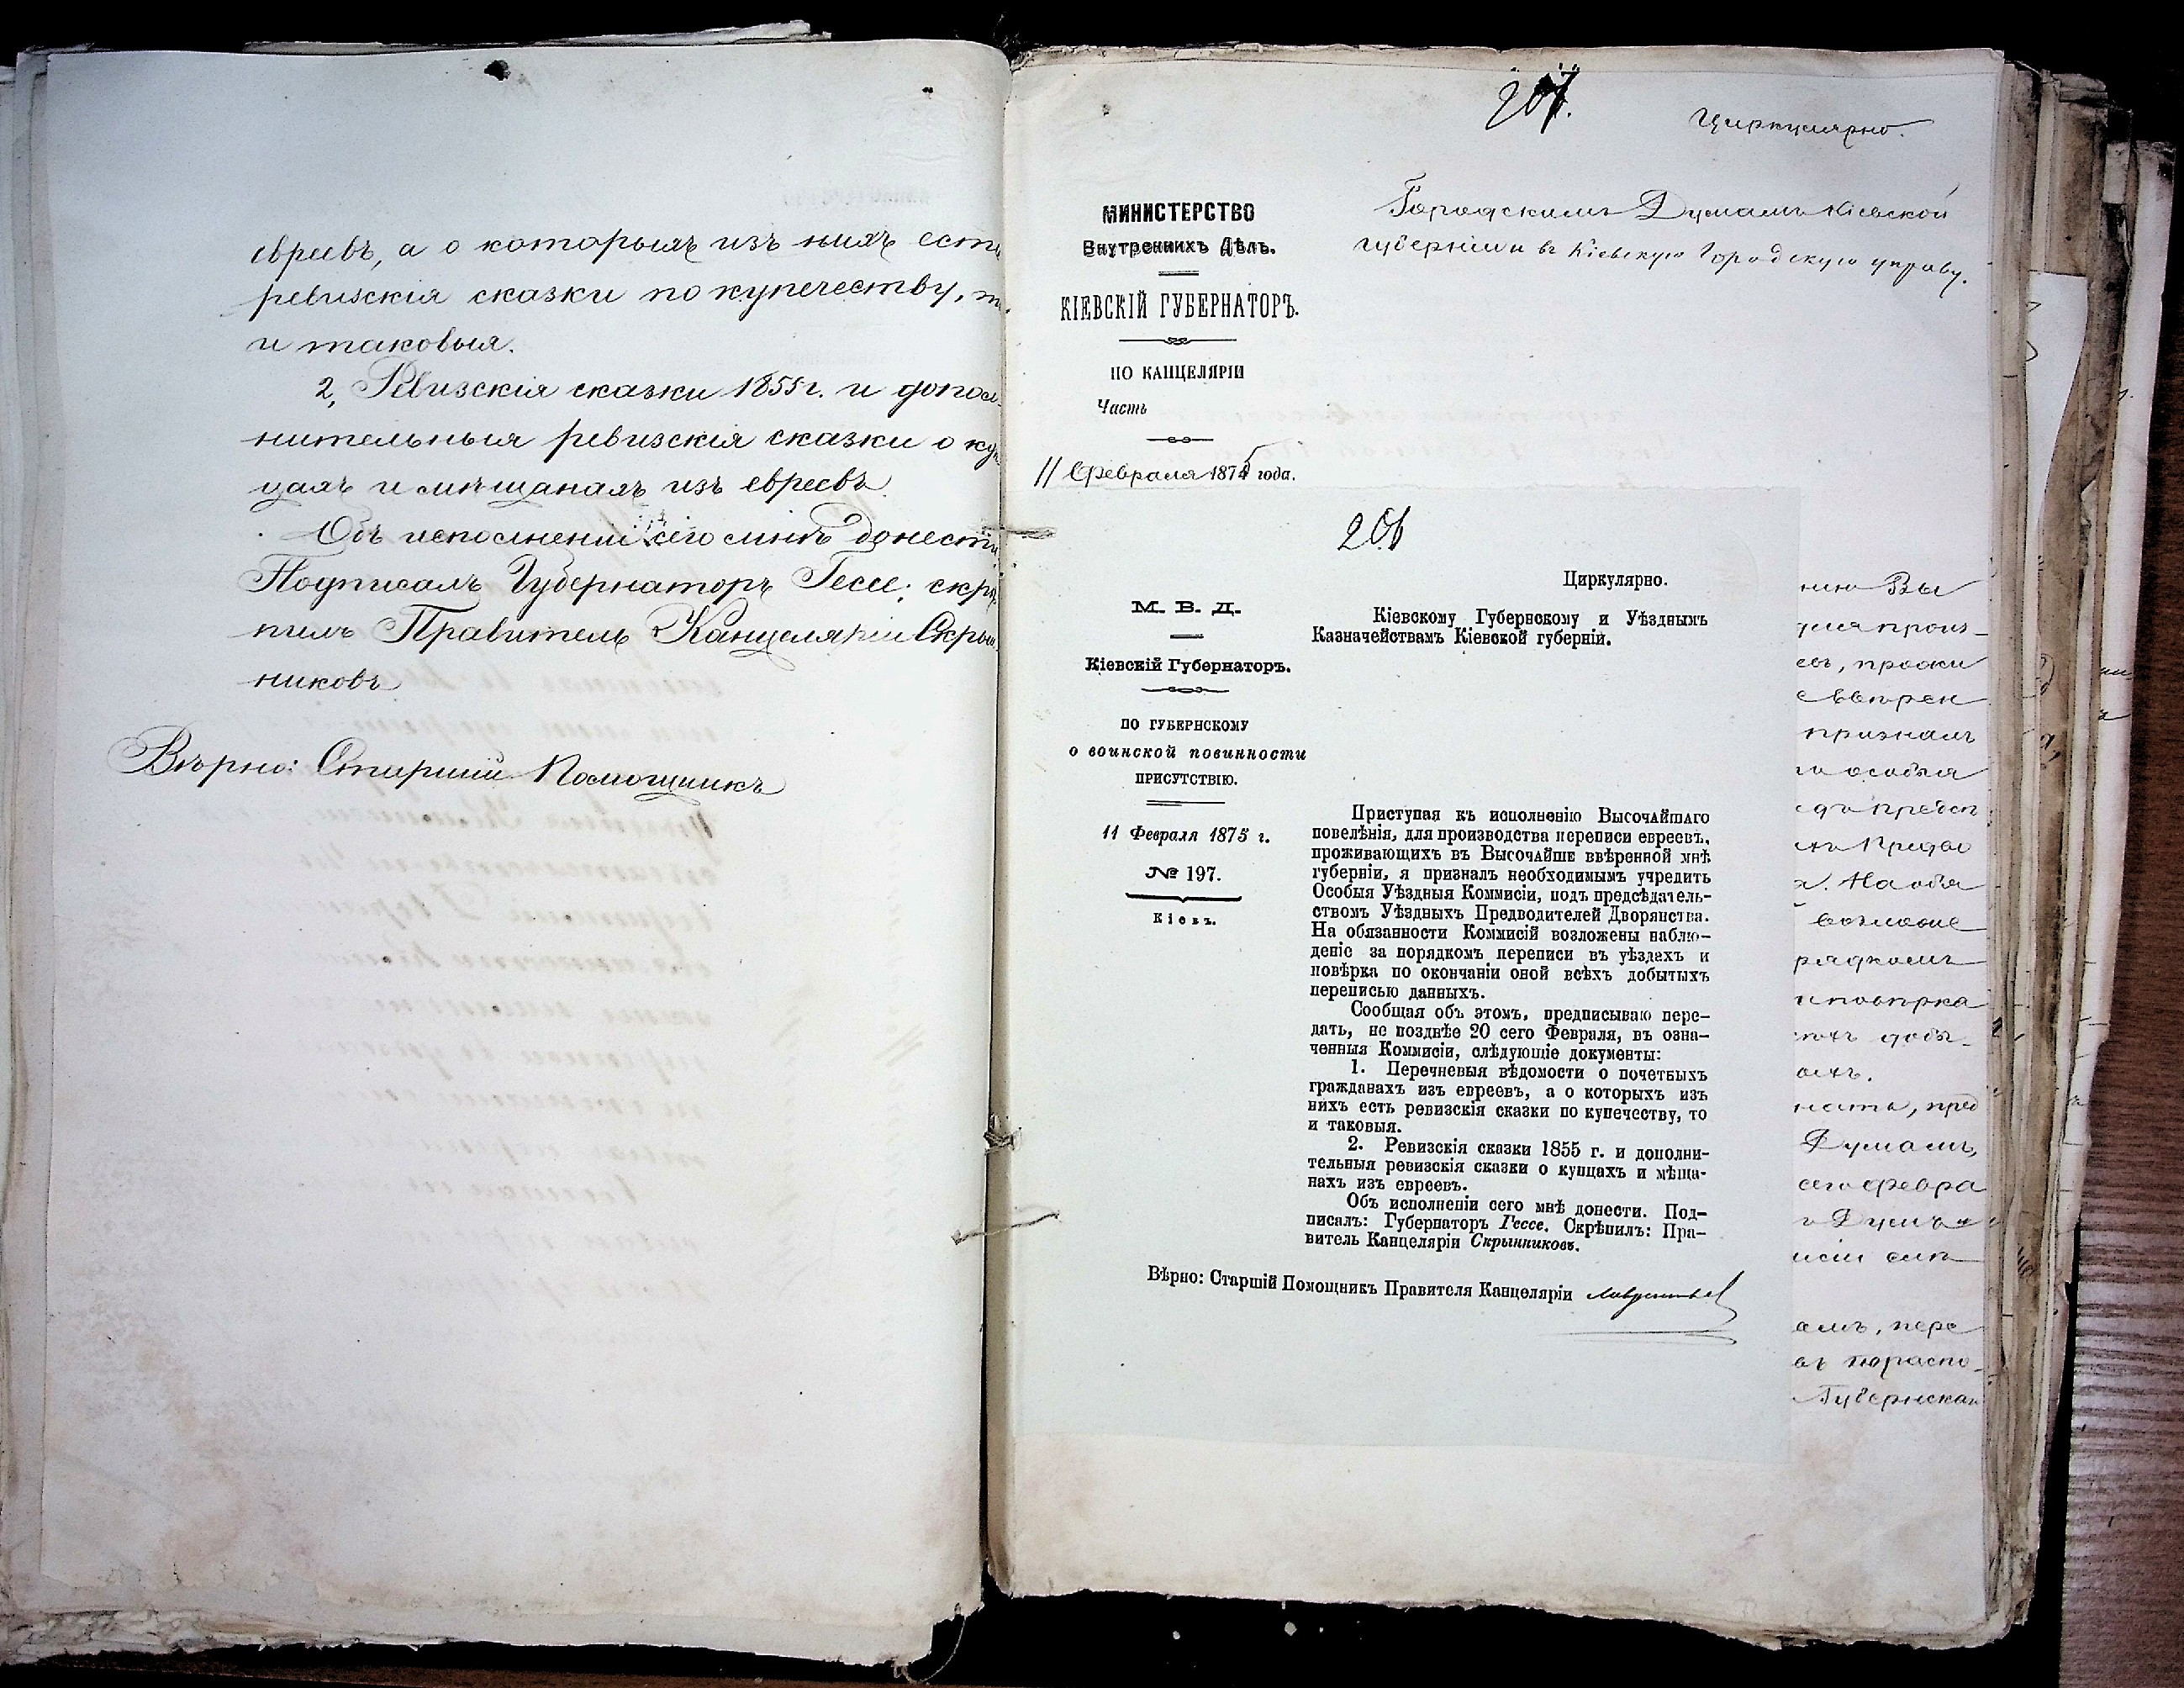 евреевъ, а о которыхъ изъ нихъ есть
ревизскія сказки по купечеству, то
и таковыя.
2, Ревизскія сказки 1855 г. и допол-
нительныя ревизскія сказки о куп-
цахъ и мѣщанахъ изъ евреевъ.
Объ исполненіи сего мнѣ донести
Подписалъ Губернаторъ Гессе; скрѣ-
пилъ Правитель Канцеляріи Скрын-
никовъ
Вѣрно: Старшій Помощникъ
207.
Циркулярно.
МИНИСТЕРСТВО
Внутреннихъ Дѣлъ.
КІЕВСКІЙ ГУБЕРНАТОРЪ.
ПО КАНЦЕЛЯРІИ
Часть
11 Февраля 1875 года.
Городскимъ Думамъ Кіевской
губерніи и въ Кіевскую Городскую управу.
206
Циркулярно.
М. В. Д.
Кіевскій Губернаторъ.
ПО ГУБЕРНСКОМУ
о воинской повинности
ПРИСУТСТВІЮ.
11 Февраля 1875 г.
№ 197.
Кіевъ.
Кіевскому Губернскому и Уѣзднымъ
Казначействамъ Кіевской губерніи.
Приступая къ исполненію Высочайшаго
повелѣнія, для производства переписи евреевъ,
проживающихъ въ Высочайше ввѣренной мнѣ
губерніи, я призналъ необходимымъ учредить
Особыя Уѣздныя Коммисіи, подъ предсѣдатель-
ствомъ Уѣздныхъ Предводителей Дворянства.
На обязанности Коммисій возложены наблю-
деніе за порядкомъ переписи въ уѣздахъ и
повѣрка по окончаніи оной всѣхъ добытыхъ
переписью данныхъ.
Сообщая объ этомъ, предписываю пере-
дать, не позднѣе 20 сего Февраля, въ озна-
ченныя Коммисіи, слѣдующіе документы:
1. Перечневыя вѣдомости о почетныхъ
гражданахъ изъ евреевъ, а о которыхъ изъ
нихъ есть ревизскія сказки по купечеству, то
и таковыя.
2. Ревизскія сказки 1855 г. и дополни-
тельныя ревизскія сказки о купцахъ и мѣща-
нахъ изъ евреевъ.
Объ исполненіи сего мнѣ донести. Под-
писалъ: Губернаторъ Гессе. Скрѣпилъ: Пра-
витель Канцеляріи Скрынниковъ.
Вѣрно: Старшій Помощникъ Правителя Канцеляріи
нію Вы
для произ-
евъ, прожи
ввѣрен
призналъ
особыя
Предво
На обя
возложе
рядкомъ
повѣрка
добы-
пред
Думамъ,
сего февра
Думъ
амъ, пере
по распо-
Губернская